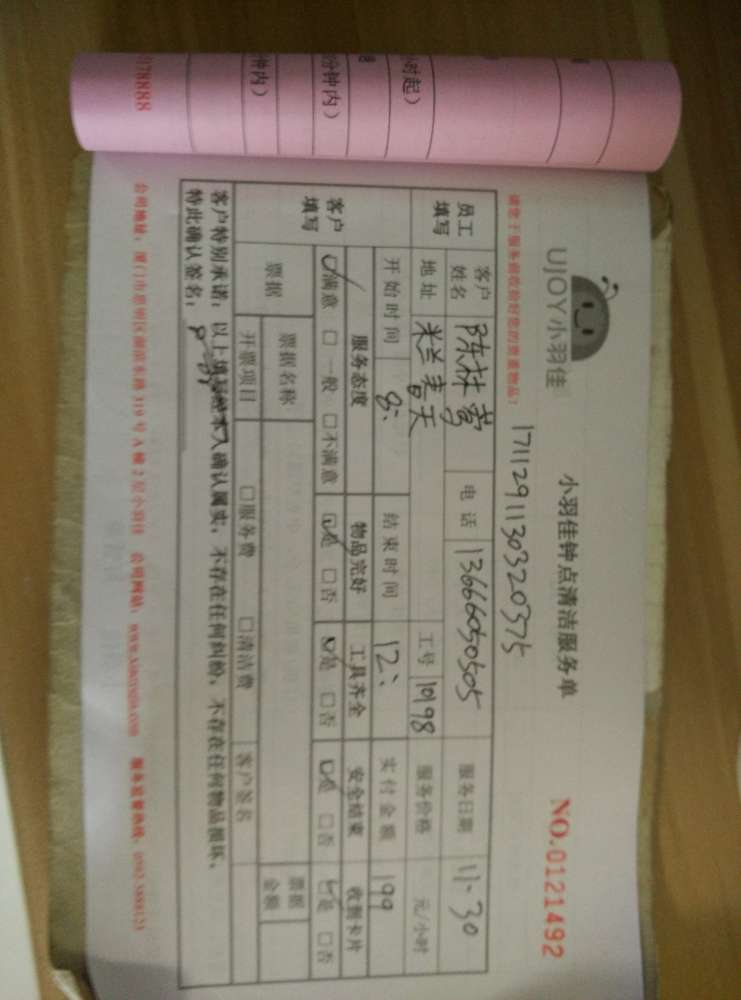 178888
钟内）
分钟内）
小时起）
UJOY小羽佳
小羽佳钟点清洁服务单
NO.0121492
请您于服务前收拾好您的贵重物品！
17112911303203​75
员工填写
客户姓名
陈林莺
电话
13666050505
服务日期
11.30
地址
米兰春天
工号
10198
服务价格
元/小时
开始时间
8:
结束时间
12:
实付金额
199
客户填写
服务态度
物品完好
工具齐全
安全结束
收据卡片
☑满意 □一般 □不满意
☑是 □否
☑是 □否
☑是 □否
☑是 □否
票据
票据名称
票据金额
开票项目
□服务费 □清洁费
客户签名
客户特别承诺：以上填写经本人确认属实，不存在任何纠纷，不存在任何物品损坏，
特此确认签名：
公司地址：厦门市思明区湖滨东路319号A幢2层小羽佳 公司网站：www.xiaoyujia.com 服务监督热线：0592-5888123